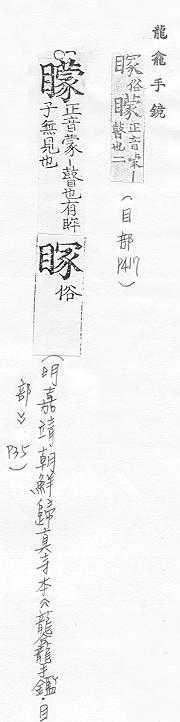 龍龕手鏡
䁇俗矇正音蒙—
瞽也二
(目部P417)
矇正音蒙—瞽也有眸
子無見也
䁇俗
(明嘉靖朝鮮歸真寺本《龍龕手鑑·目
部》P35)